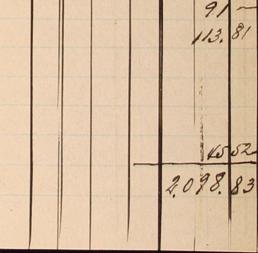 91 —
113. 81
45 52
2.098. 83